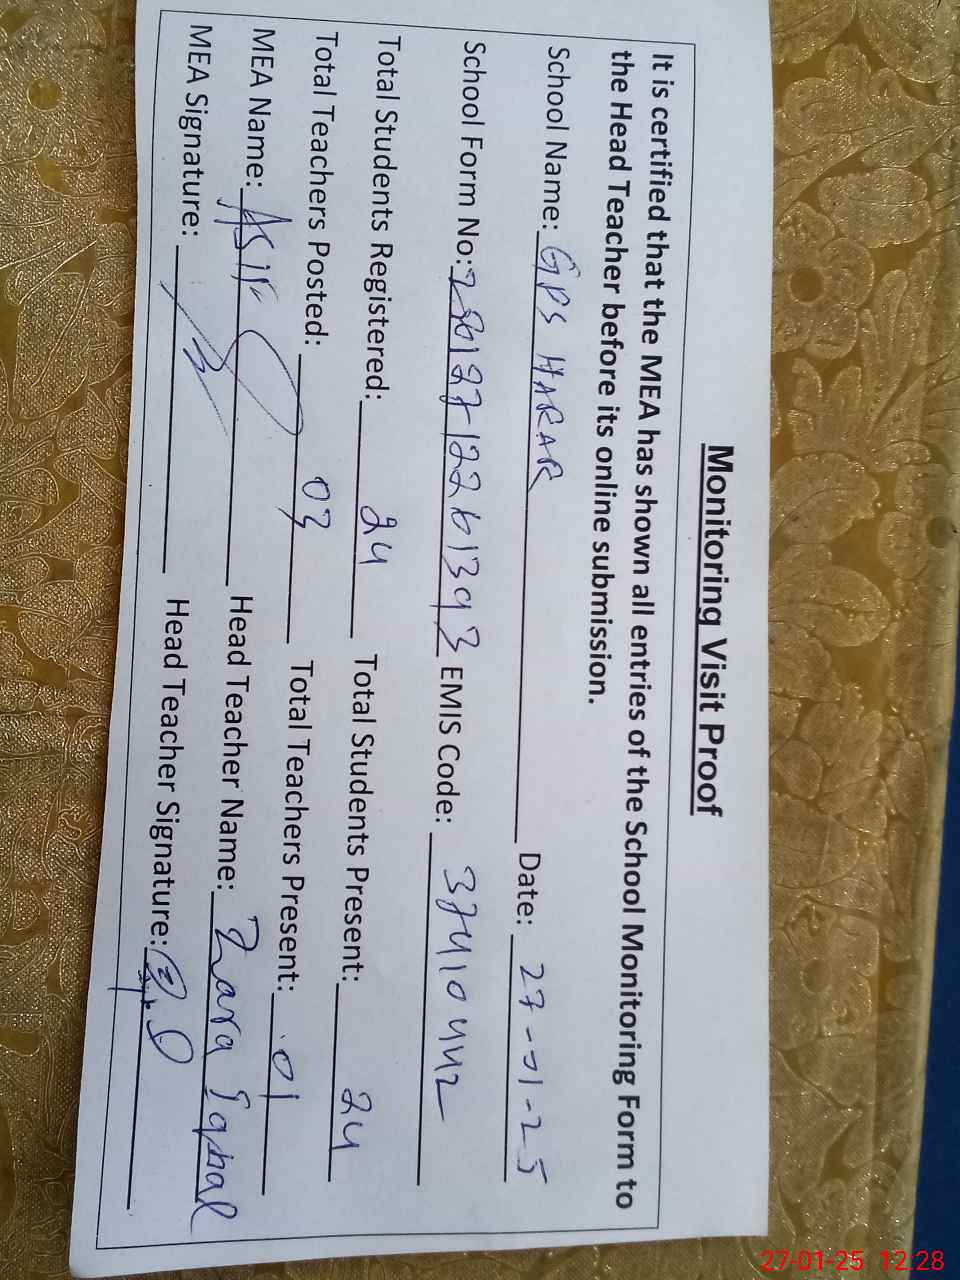 Monitoring Visit Proof
It is certified that the MEA has shown all entries of the School Monitoring Form to
the Head Teacher before its online submission.
School Name: GPS HARAR Date: 27-01-25
School Form No: EMIS Code: 37410442
Total Students Registered: 24 Total Students Present: 24
Total Teachers Posted: 03 Total Teachers Present: 01
MEA Name: ASIF Head Teacher Name: Zara Iqbal
MEA Signature: Head Teacher Signature:
27-01-25 12:28